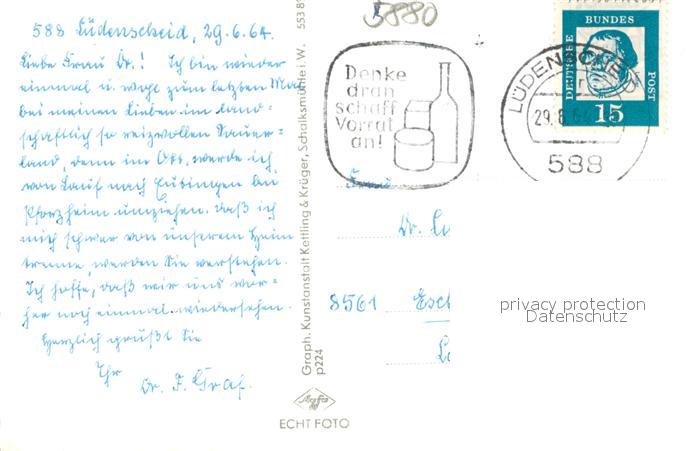 5880
588 Lüdenscheid, 29.6.64.
Liebe Frau Dr.! Ich bin wieder
einmal u. wohl zum letzten Mal
bei meinen Lieben im land=
schaftlich so reizvollen Sauer=
land, denn im Okt. werde ich
von Lauf nach Eutingen bei
Pforzheim umziehen. Daß ich
mich schwer von unserem Heim
trenne, werden Sie verstehen.
Ich hoffe, daß wir uns vor=
her noch einmal wiedersehen.
Herzlich grüßt Sie
Ihr
Dr. F. Graf.
Graph. Kunstanstalt Kettling & Krüger, Schalksmühle i. W.
553 89
p224
Agfa
ECHT FOTO
Denke
dran
schaff
Vorrat
an!
LÜDENSCHEID
29.6.64
588
DEUTSCHE BUNDES POST
15
Frau
Dr.
8561
privacy protection
Datenschutz